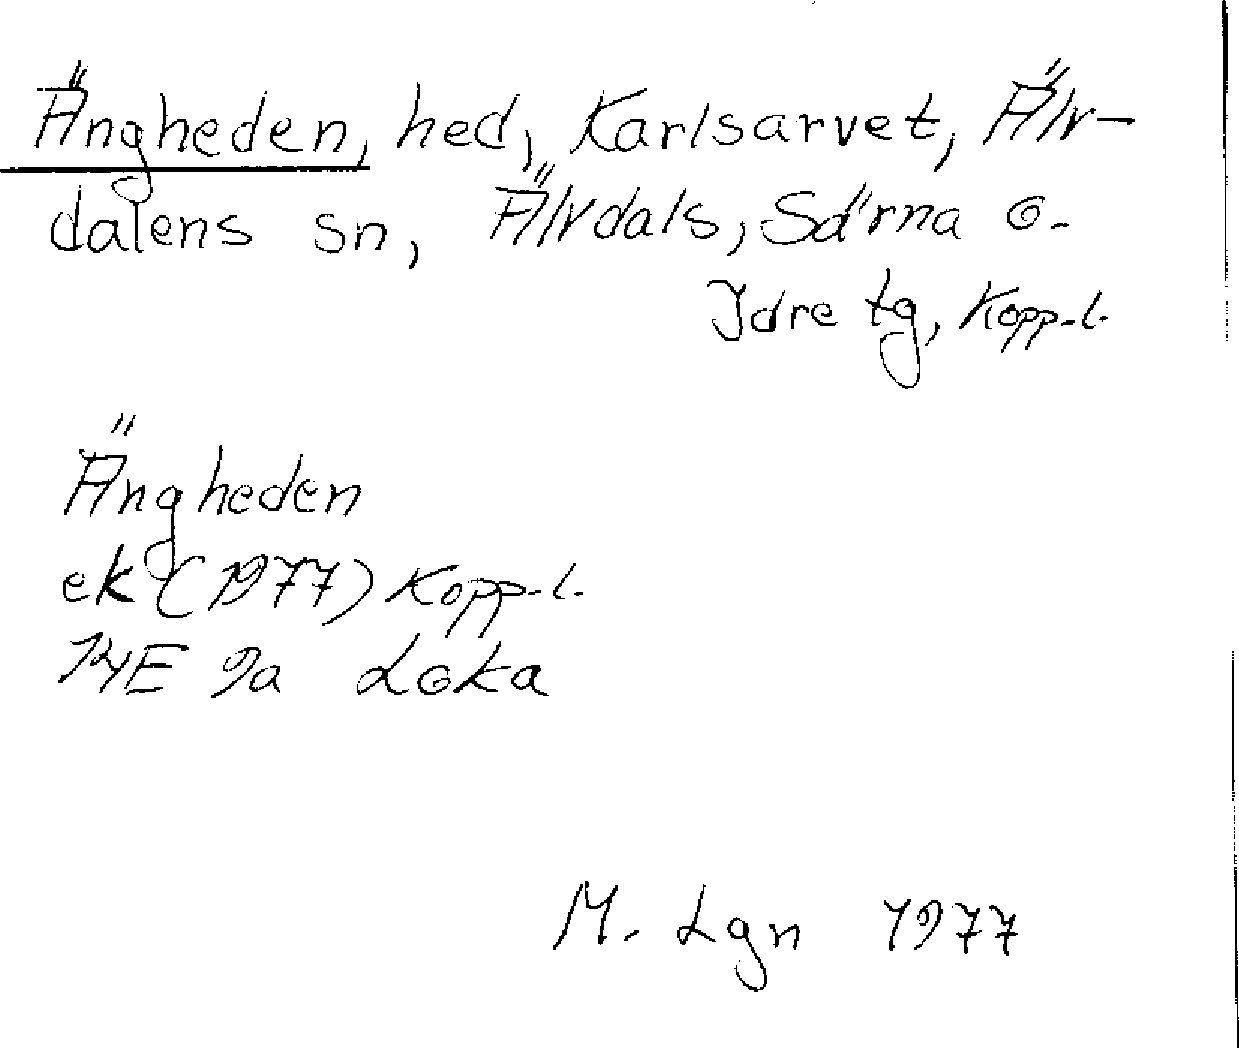 Ängheden, hed, Karlsarvet, Älv-
dalens sn, Älvdals, Särna o.
Idre tg, Kopp.l.
Ängheden
ek (1977) Kopp.l.
14E 9a Loka
M. Lgn 1977